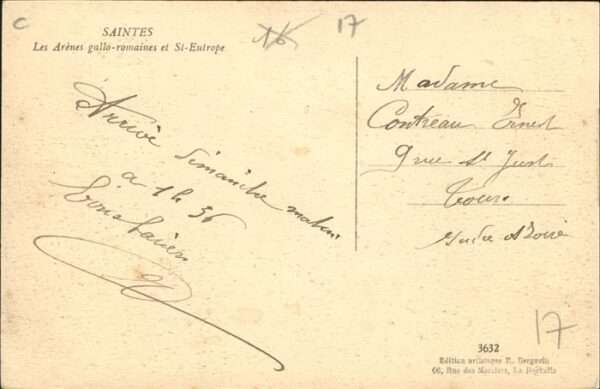 C
16
17
SAINTES
Les Arènes gallo-romaines et St-Eutrope
Arrive
dimanche matin
a 1h 36
Madame
Contreau Ernest
9 rue St Just
Tours
Indre & Loire
17
3632
Edition artistique R. Bergevin
66, Rue des Merciers, La Rochelle